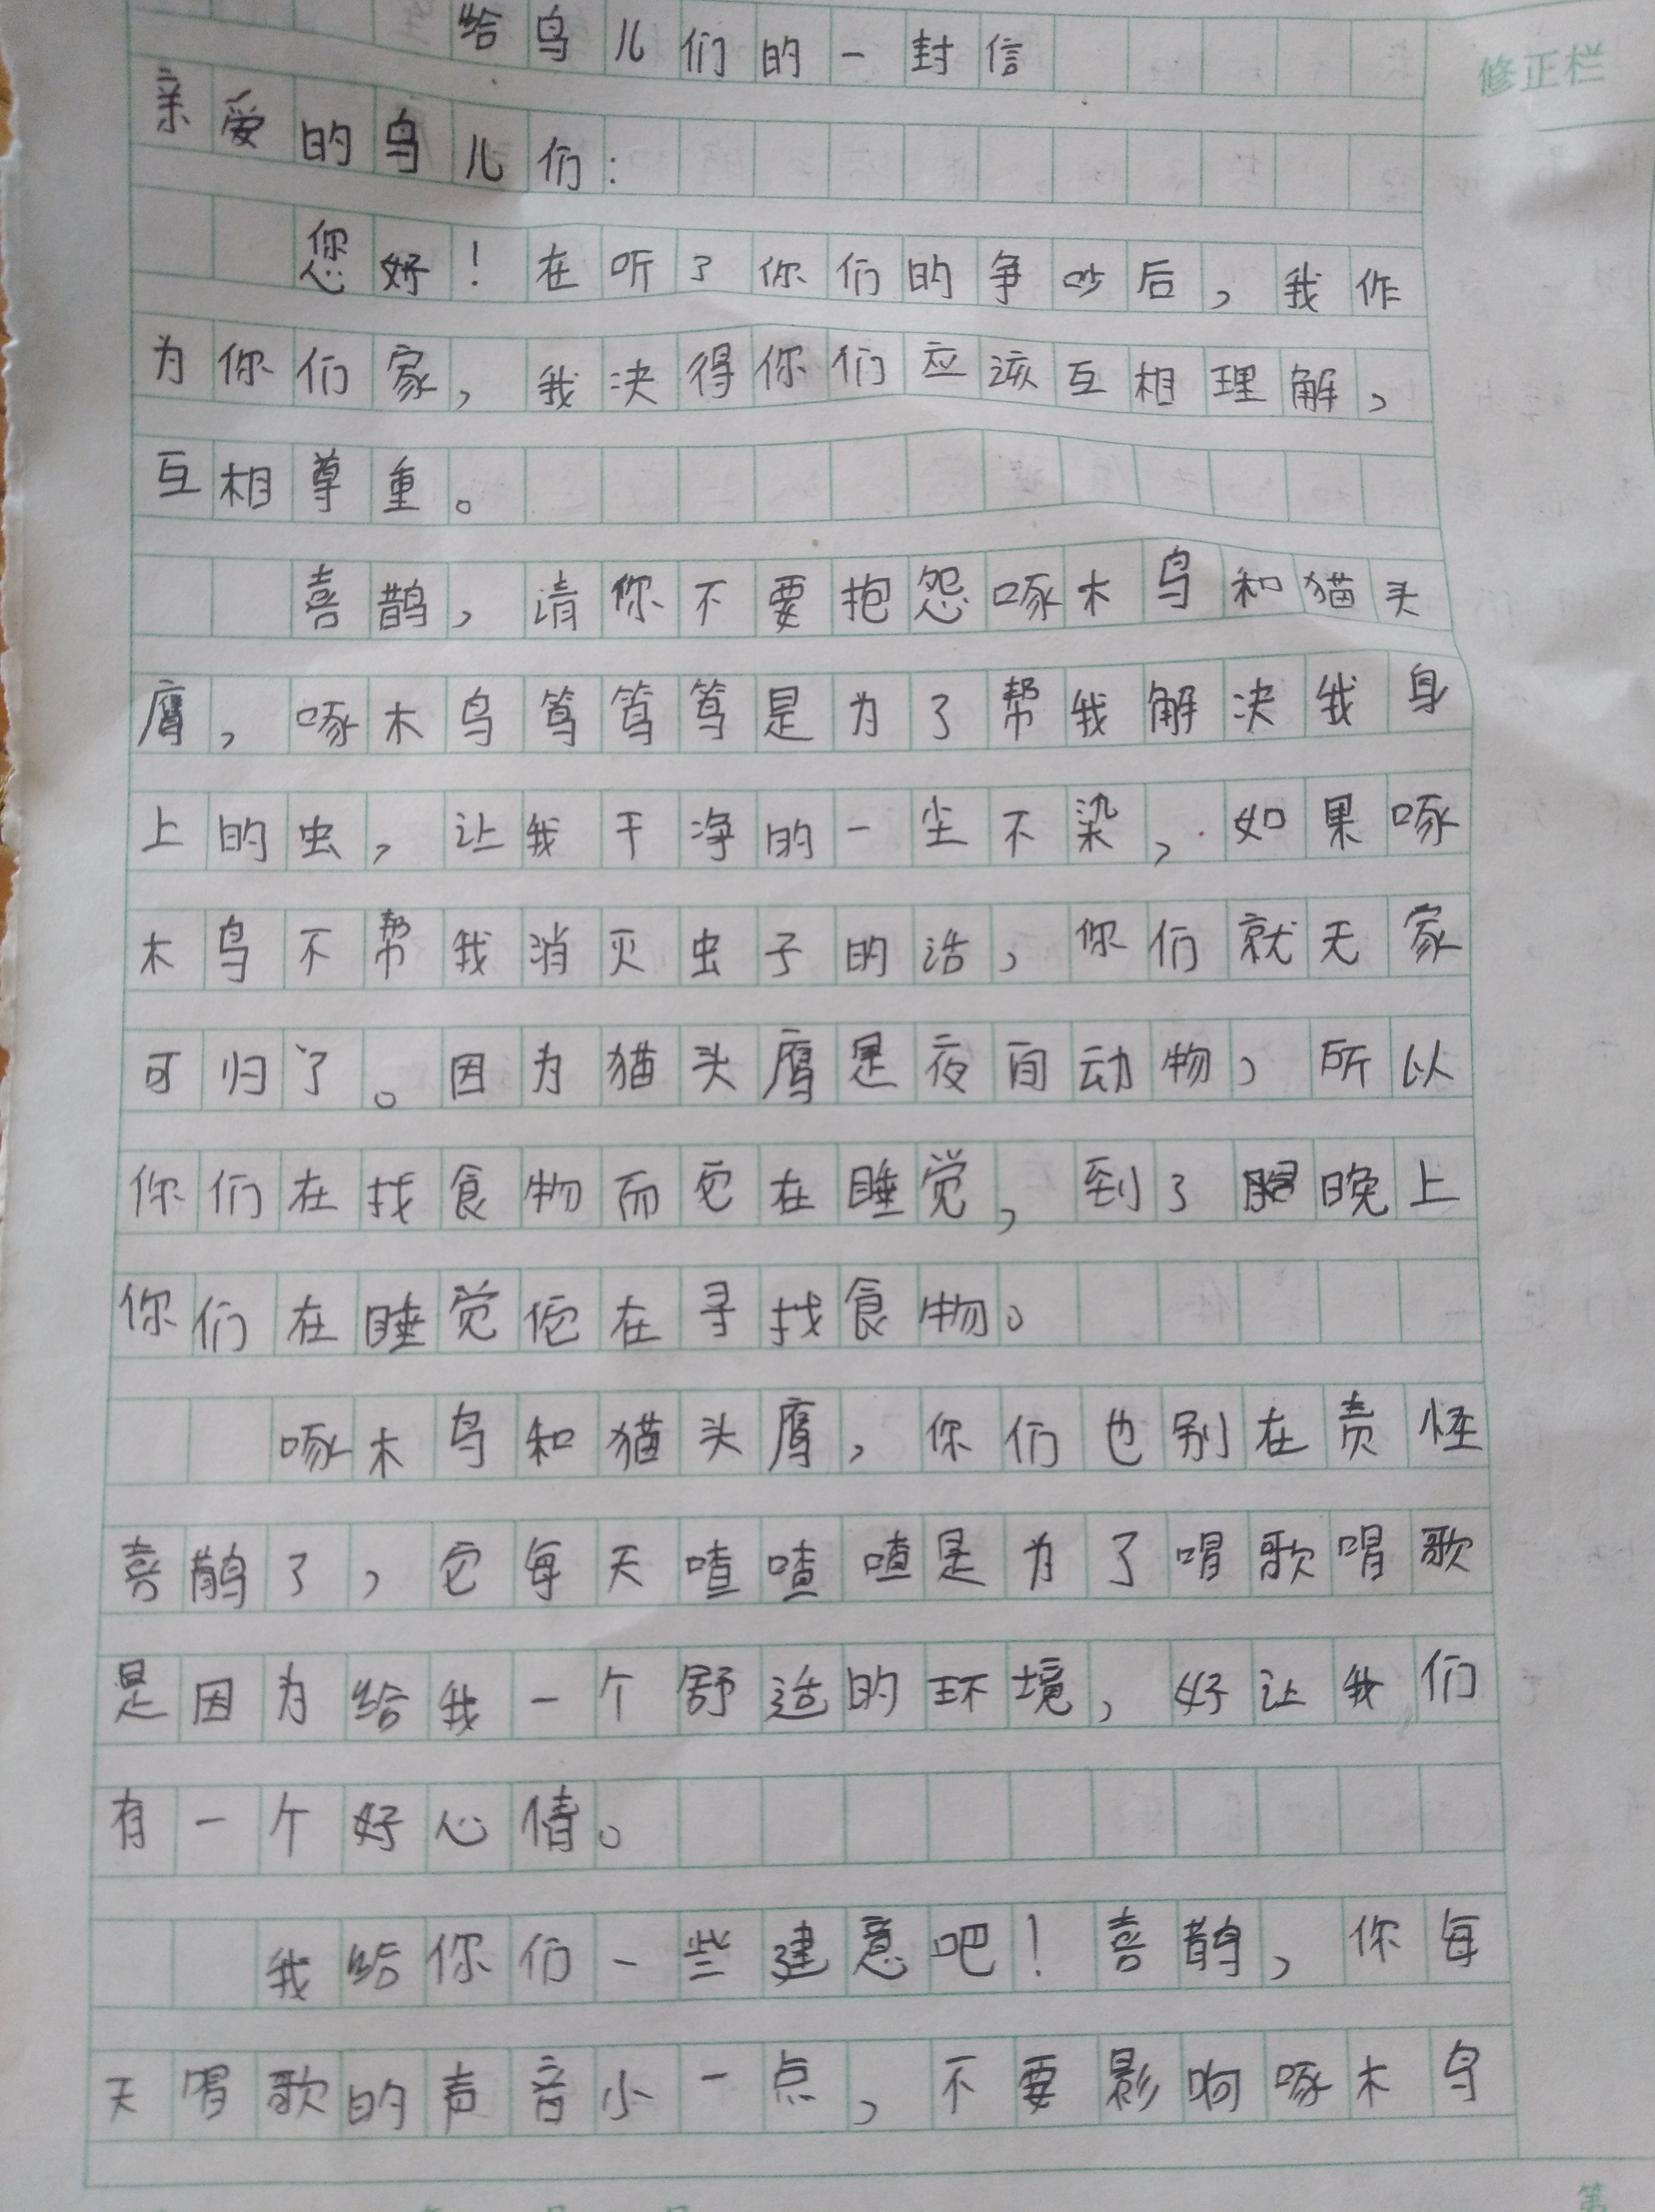 给鸟儿们的一封信
修正栏
亲爱的鸟儿们：
您好！在听了你们的争吵后，我作
为你们家，我决得你们应该互相理解，
互相尊重。
喜鹊，请你不要抱怨啄木鸟和猫头
鹰，啄木鸟笃笃笃是为了帮我解决我身
上的虫，让我干净的一尘不染，如果啄
木鸟不帮我消灭虫子的话，你们就无家
可归了。因为猫头鹰是夜间动物，所以
你们在找食物而它在睡觉，到了晚上
你们在睡觉它在寻找食物。
啄木鸟和猫头鹰，你们也别在责怪
喜鹊了，它每天喳喳喳是为了唱歌唱歌
是因为给我一个舒适的环境，好让我们
有一个好心情。
我给你们一些建意吧！喜鹊，你每
天唱歌的声音小一点，不要影响啄木鸟
第